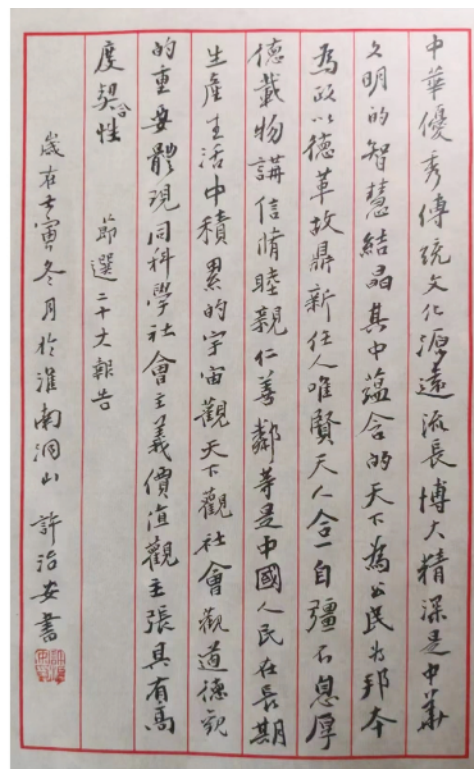 中華優秀傳統文化源遠流長博大精深是中華
文明的智慧結晶其中蘊含的天下為公民為邦本
為政以德革故鼎新任人唯賢天人合一自彊不息厚
德載物講信脩睦親仁善鄰等是中國人民在長期
生產生活中積累的宇宙觀天下觀社會觀道德觀
的重要體現同科學社會主義價值觀主張具有高
度契合性 節選二十大報告
歲在壬寅冬月於淮南洞山 許治安書